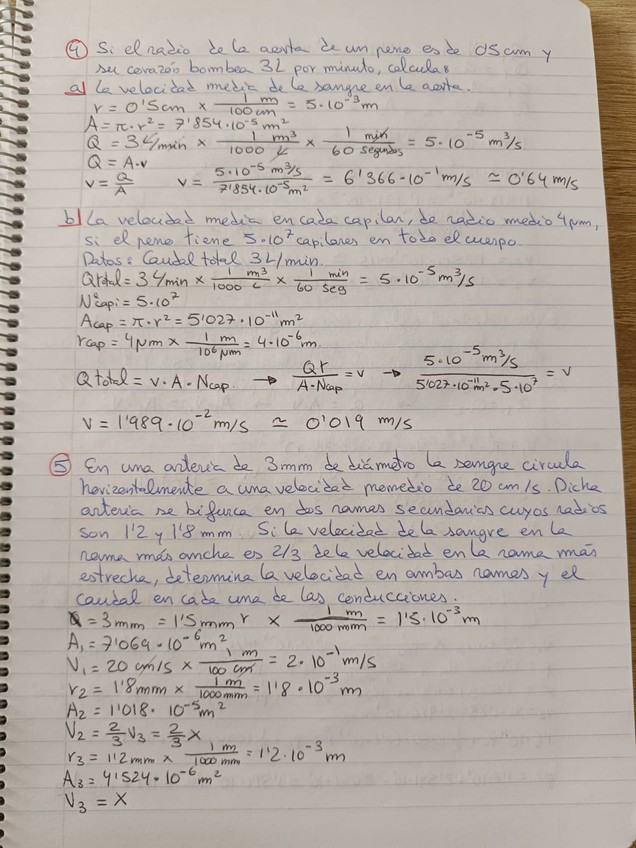 4 Si el radio de la aorta de un perro es de 0'5 cm y
su corazón bombea 3L por minuto, calcula:
a) La velocidad media de la sangre en la aorta.
r = 0'5cm × 1 m / 100 cm = 5·10⁻³ m
A = π·r² = 7'854·10⁻⁵ m²
Q = 3 L/min × 1 m³ / 1000 L × 1 min / 60 segundos = 5·10⁻⁵ m³/s
Q = A·v
v = Q/A v = 5·10⁻⁵ m³/s / 7'854·10⁻⁵ m² = 6'366·10⁻¹ m/s ≃ 0'64 m/s
b) La velocidad media en cada capilar, de radio medio 4μm,
si el perro tiene 5·10⁷ capilares en todo el cuerpo.
Datos: Caudal total 3L/min.
Qtotal = 3 L/min × 1 m³ / 1000 L × 1 min / 60 seg = 5·10⁻⁵ m³/s
Nºcapi = 5·10⁷
Acap = π·r² = 5'027·10⁻¹¹ m²
rcap = 4μm × 1 m / 10⁶ μm = 4·10⁻⁶ m.
Q total = v·A·Ncap → QT / A·Ncap = v → 5·10⁻⁵ m³/s / 5'027·10⁻¹¹ m² · 5·10⁷ = v
v = 1'989·10⁻² m/s ≃ 0'019 m/s
5 En una arteria de 3mm de diámetro la sangre circula
horizontalmente a una velocidad promedio de 20 cm/s. Dicha
arteria se bifurca en dos ramas secundarias cuyos radios
son 1'2 y 1'8 mm. Si la velocidad de la sangre en la
rama más ancha es 2/3 de la velocidad en la rama más
estrecha, determina la velocidad en ambas ramas y el
caudal en cada una de las conducciones.
= 3mm = 1'5mm r × 1 m / 1000 mm = 1'5·10⁻³ m
A₁ = 7'069·10⁻⁶ m²
V₁ = 20 cm/s × 1 m / 100 cm = 2·10⁻¹ m/s
r₂ = 1'8mm × 1 m / 1000 mm = 1'8·10⁻³ m
A₂ = 1'018·10⁻⁵ m²
V₂ = 2/3 V₃ = 2/3 X
r₃ = 1'2 mm × 1 m / 1000 mm = 1'2·10⁻³ m
A₃ = 4'524·10⁻⁶ m²
V₃ = X